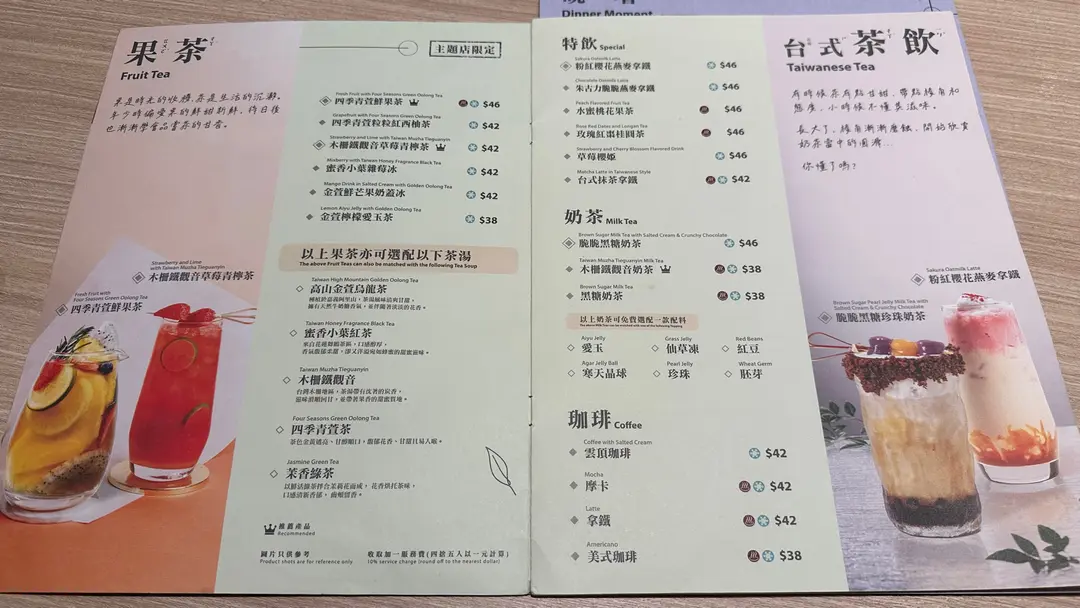 Dinner Moment
果茶
Fruit Tea
主題店限定
Fresh Fruit with Four Seasons Green Oolong Tea
四季青萱鮮果茶 $46
Grapefruit with Four Seasons Green Oolong Tea
四季青萱粒粒紅西柚茶 $42
Strawberry and Lime with Taiwan Muzha Tieguanyin
木柵鐵觀音草莓青檸茶 $42
Mixberry with Taiwan Honey Fragrance Black Tea
蜜香小葉雜莓冰 $42
Mango Drink in Salted Cream with Golden Oolong Tea
金萱鮮芒果奶蓋冰 $42
Lemon Aiyu Jelly with Golden Oolong Tea
金萱檸檬愛玉茶 $38
以上果茶亦可選配以下茶湯
The above Fruit Teas can also be matched with the following Tea Soup
Taiwan High Mountain Golden Oolong Tea
高山金萱烏龍茶
Taiwan Honey Fragrance Black Tea
蜜香小葉紅茶
Taiwan Muzha Tieguanyin
木柵鐵觀音
Four Seasons Green Oolong Tea
四季青萱茶
茶色金黃透亮、甘醇順口，馥郁花香、甘甜且易入喉。
Jasmine Green Tea
茉香綠茶
推薦產品
Recommended
圖片只供參考
Product shots are for reference only
收取加一服務費(四捨五入以一元計算)
10% service charge (round off to the nearest dollar)
Strawberry and Lime
with Taiwan Muzha Tieguanyin
木柵鐵觀音草莓青檸茶
Fresh Fruit with
Four Seasons Green Oolong Tea
四季青萱鮮果茶
特飲 Special
Sakura Oatmilk Latte
粉紅櫻花燕麥拿鐵 $46
Chocolate Oatmilk Latte
朱古力脆脆燕麥拿鐵 $46
Peach Flavored Fruit Tea
水蜜桃花果茶 $46
Rose Red Dates and Longan Tea
玫瑰紅棗桂圓茶 $46
Strawberry and Cherry Blossom Flavored Drink
草莓櫻姬 $46
Matcha Latte in Taiwanese Style
台式抹茶拿鐵 $42
奶茶 Milk Tea
Brown Sugar Milk Tea with Salted Cream & Crunchy Chocolate
脆脆黑糖奶茶 $46
Taiwan Muzha Tieguanyin Milk Tea
木柵鐵觀音奶茶 $38
Brown Sugar Milk Tea
黑糖奶茶 $38
以上奶茶可免費選配一款配料
Aiyu Jelly
愛玉
Grass Jelly
仙草凍
Red Beans
紅豆
Agar Jelly Ball
寒天晶球
Pearl Jelly
珍珠
Wheat Germ
胚芽
珈琲 Coffee
Coffee with Salted Cream
雲頂珈琲 $42
Mocha
摩卡 $42
Latte
拿鐵 $42
Americano
美式珈琲 $38
台式茶飲
Taiwanese Tea
你懂了嗎?
Sakura Oatmilk Latte
粉紅櫻花燕麥拿鐵
Brown Sugar Pearl Jelly Milk Tea with
Salted Cream & Crunchy Chocolate
脆脆黑糖珍珠奶茶